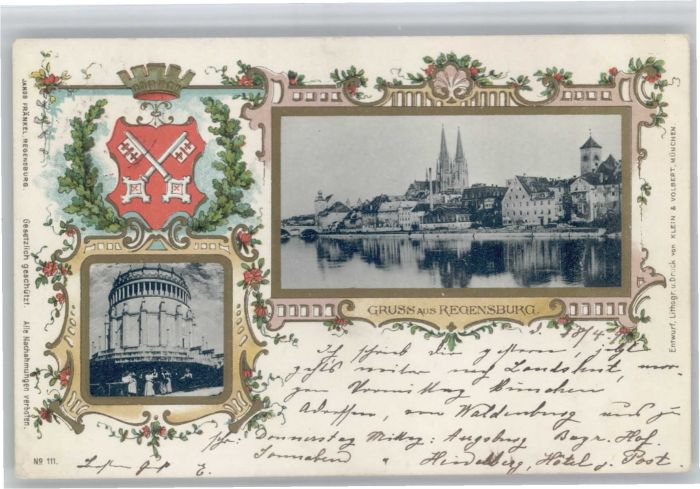 JANOS FRÄNKEL, REGENSBURG.
Gesetzlich geschützt. Alle Nachahmungen verboten.
GRUSS AUS REGENSBURG.
Entwurf, Lithogr. u. Druck von KLEIN & VOLBERT, MÜNCHEN.
d. 18/4.
Ich schrieb dir gestern,
geht's weiter nach Landshut, mor-
gen Vormittag München
Adressen, von Waldenburg
Donnerstag Mittag: Augsburg Bayr. Hof.
Sonnabend " Heidelberg, Hôtel z. Post
Nº 111.